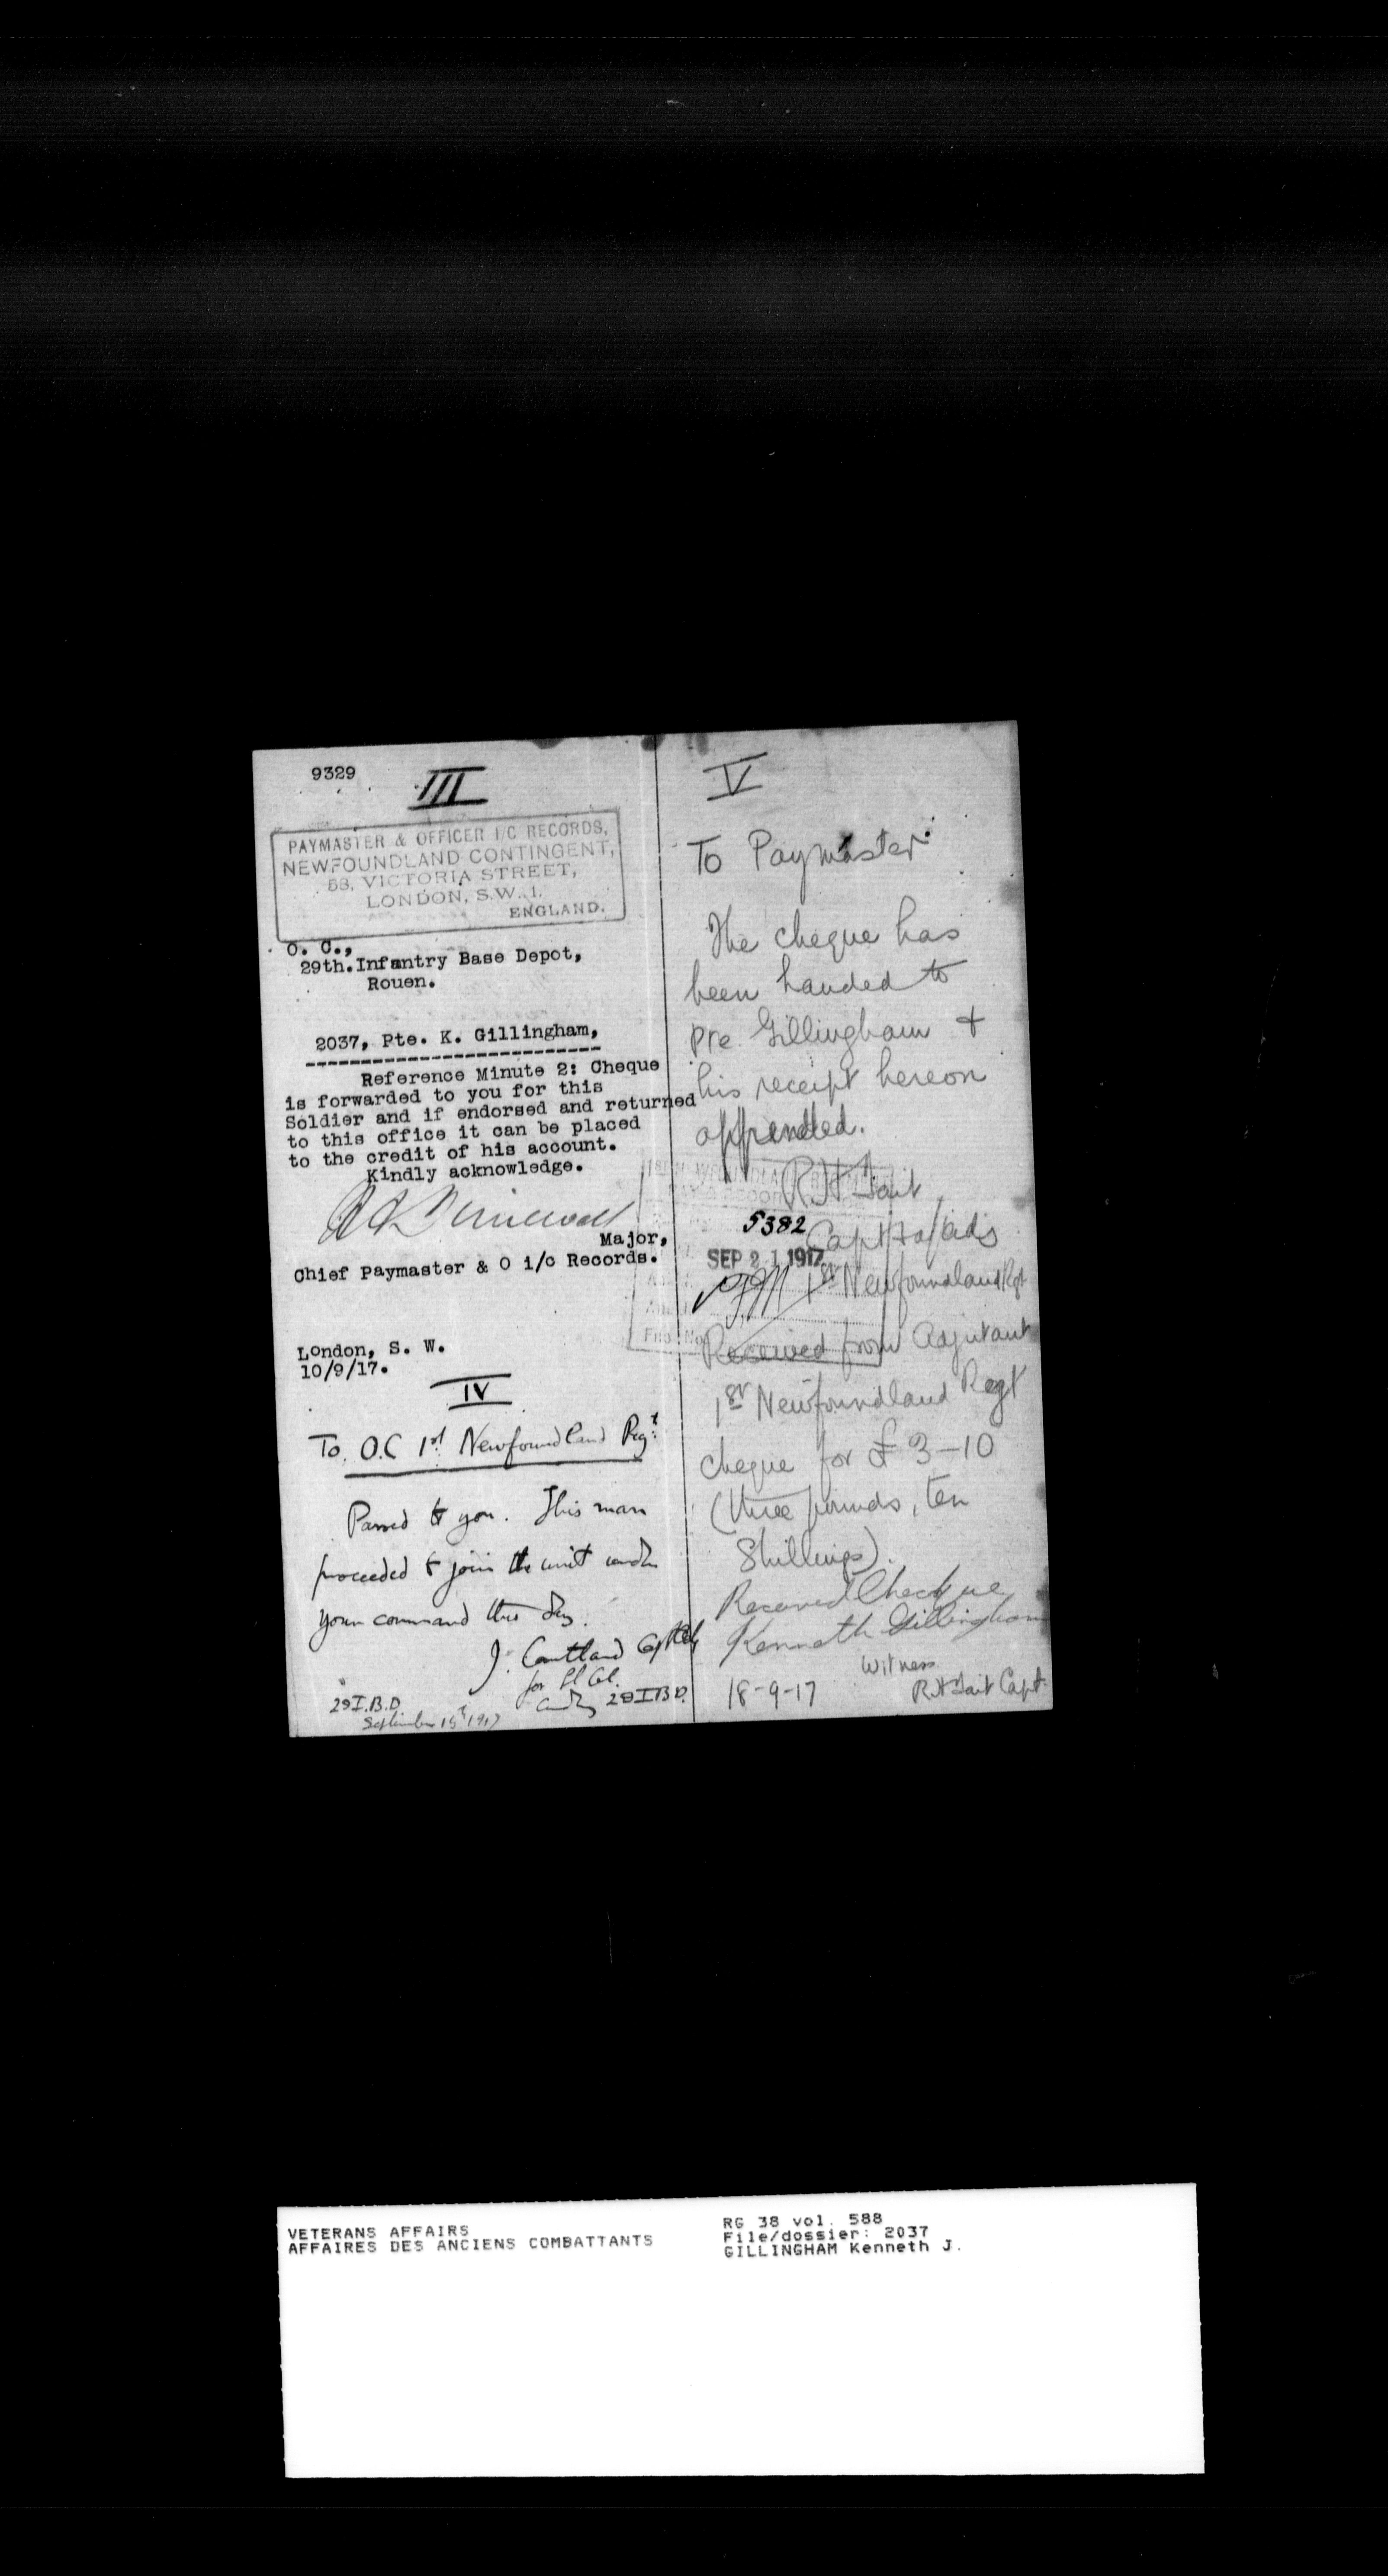 9329
III
PAYMASTER & OFFICER I/C RECORDS,
NEWFOUNDLAND CONTINGENT,
58, VICTORIA STREET,
LONDON, S.W. 1.
ENGLAND.
O. C.,
29th.Infantry Base Depot,
Rouen.
2037, Pte. K. Gillingham,
Reference Minute 2: Cheque
is forwarded to you for this
Soldier and if endorsed and returned
to this office it can be placed
to the credit of his account.
Kindly acknowledge.
Major,
Chief Paymaster & O i/c Records.
London, S. W.
10/9/17.
IV
To. O.C 1st Newfoundland Regt
Passed to you. This man
proceeded to join the unit under
your command this day.
J. Courtland Capt
for Lt Col.
Cmdg 29 I.B.D.
29 I.B.D
September 15th 1917
V
To Paymaster
The cheque has
been handed to
Pte. Gillingham +
his receipt hereon
appended.
R.H Tait
Capt + a/adj
5382
SEP 21 1917
1st Newfoundland Rgt
Received from Adjutant
1st Newfoundland Regt
cheque for £3-10
(three pounds, ten
Shillings).
Received Checkque
Kenneth Gillingham
Witness
18-9-17
R.H Tait Capt.
VETERANS AFFAIRS
AFFAIRES DES ANCIENS COMBATTANTS
RG 38 vol. 588
File/dossier: 2037
GILLINGHAM Kenneth J.